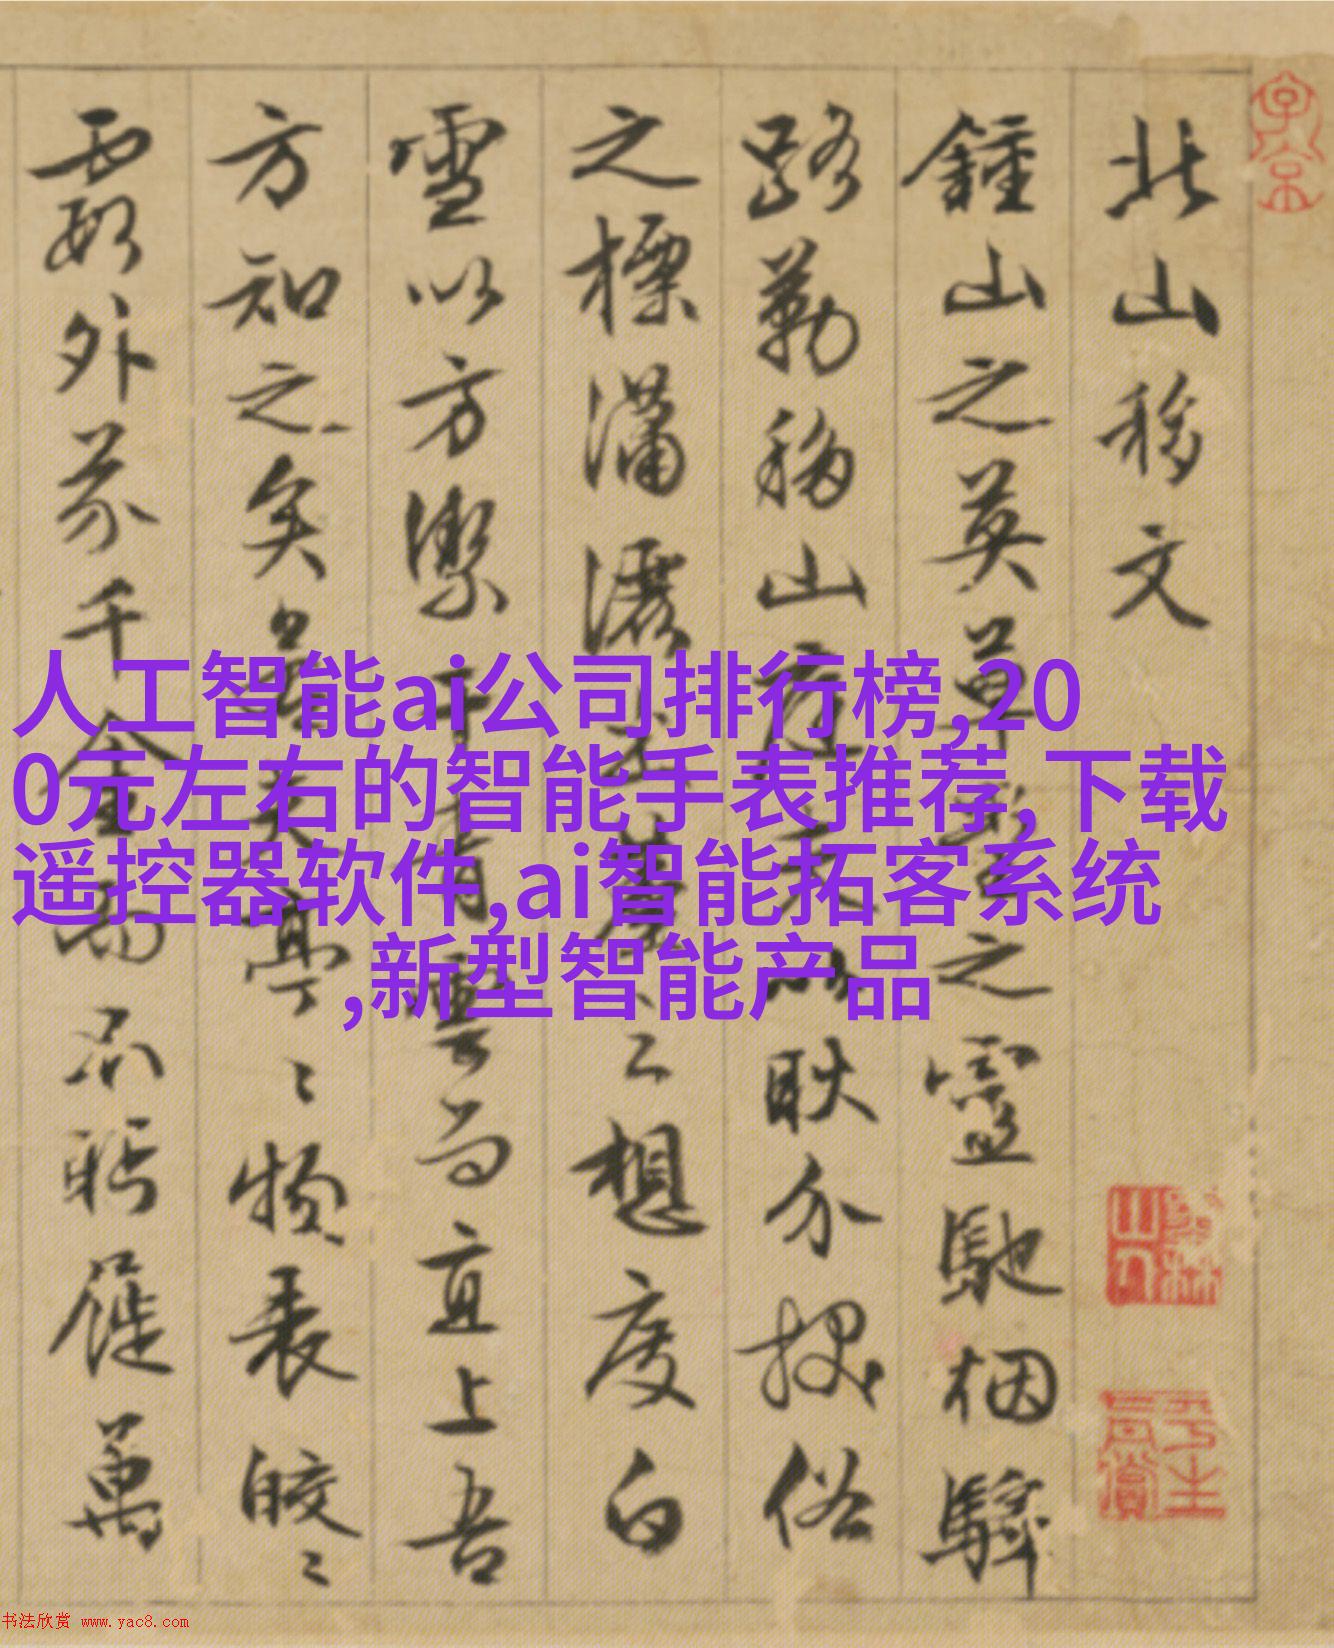 北山移文
鍾山之英草堂之靈馳烟驛
路勒移山庭夫以耿介拔俗
之標瀟灑出塵之想度白
雪以方潔干青雲而直上吾
方知之矣若夫亭〻物表皎〻
霞外芥千金而不眄屣萬
人工智能ai公司排行榜,20
0元左右的智能手表推荐,下载
遥控器软件,ai智能拓客系统
,新型智能产品
书法欣赏 www.yac8.com